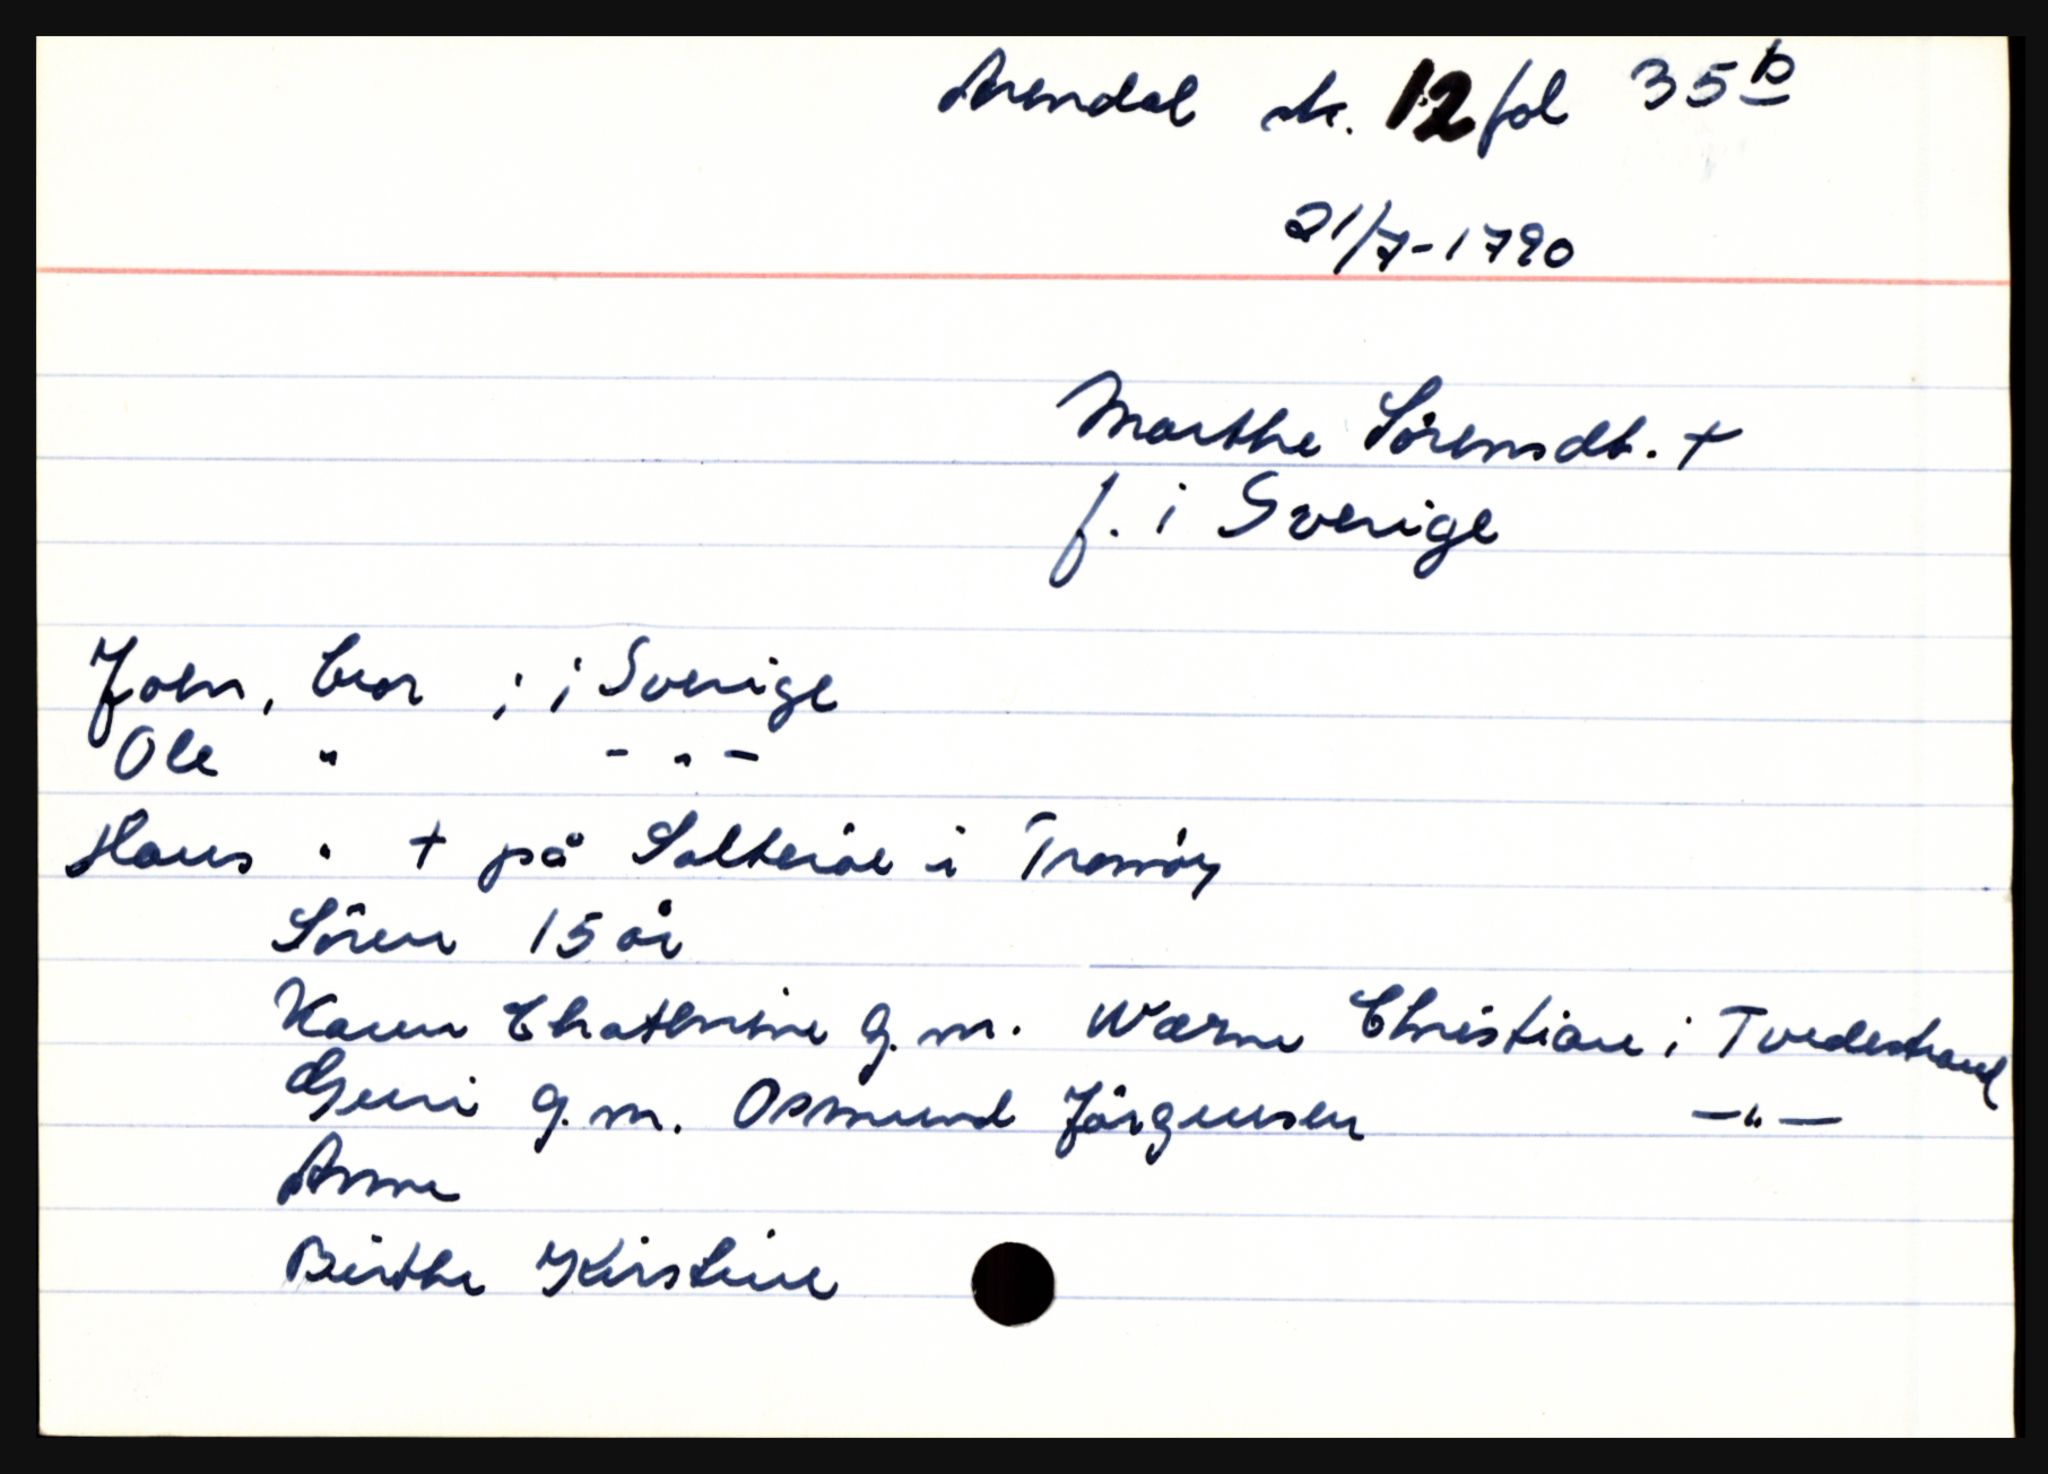 Arendal sk. 12 fol 35 b
21/7-1790
Marthe Sörensdt. +
f. i Sverige
John, bror ; i Sverige
Ole " - " -
Hans " + på Salteröe i Tromöy
Sören 15 år
Karen Chathrine g. m. Warne Christian i Tvedestrand
Guri g. m. Osmund Jörgensen - " -
Anne
Birthe Kirstine